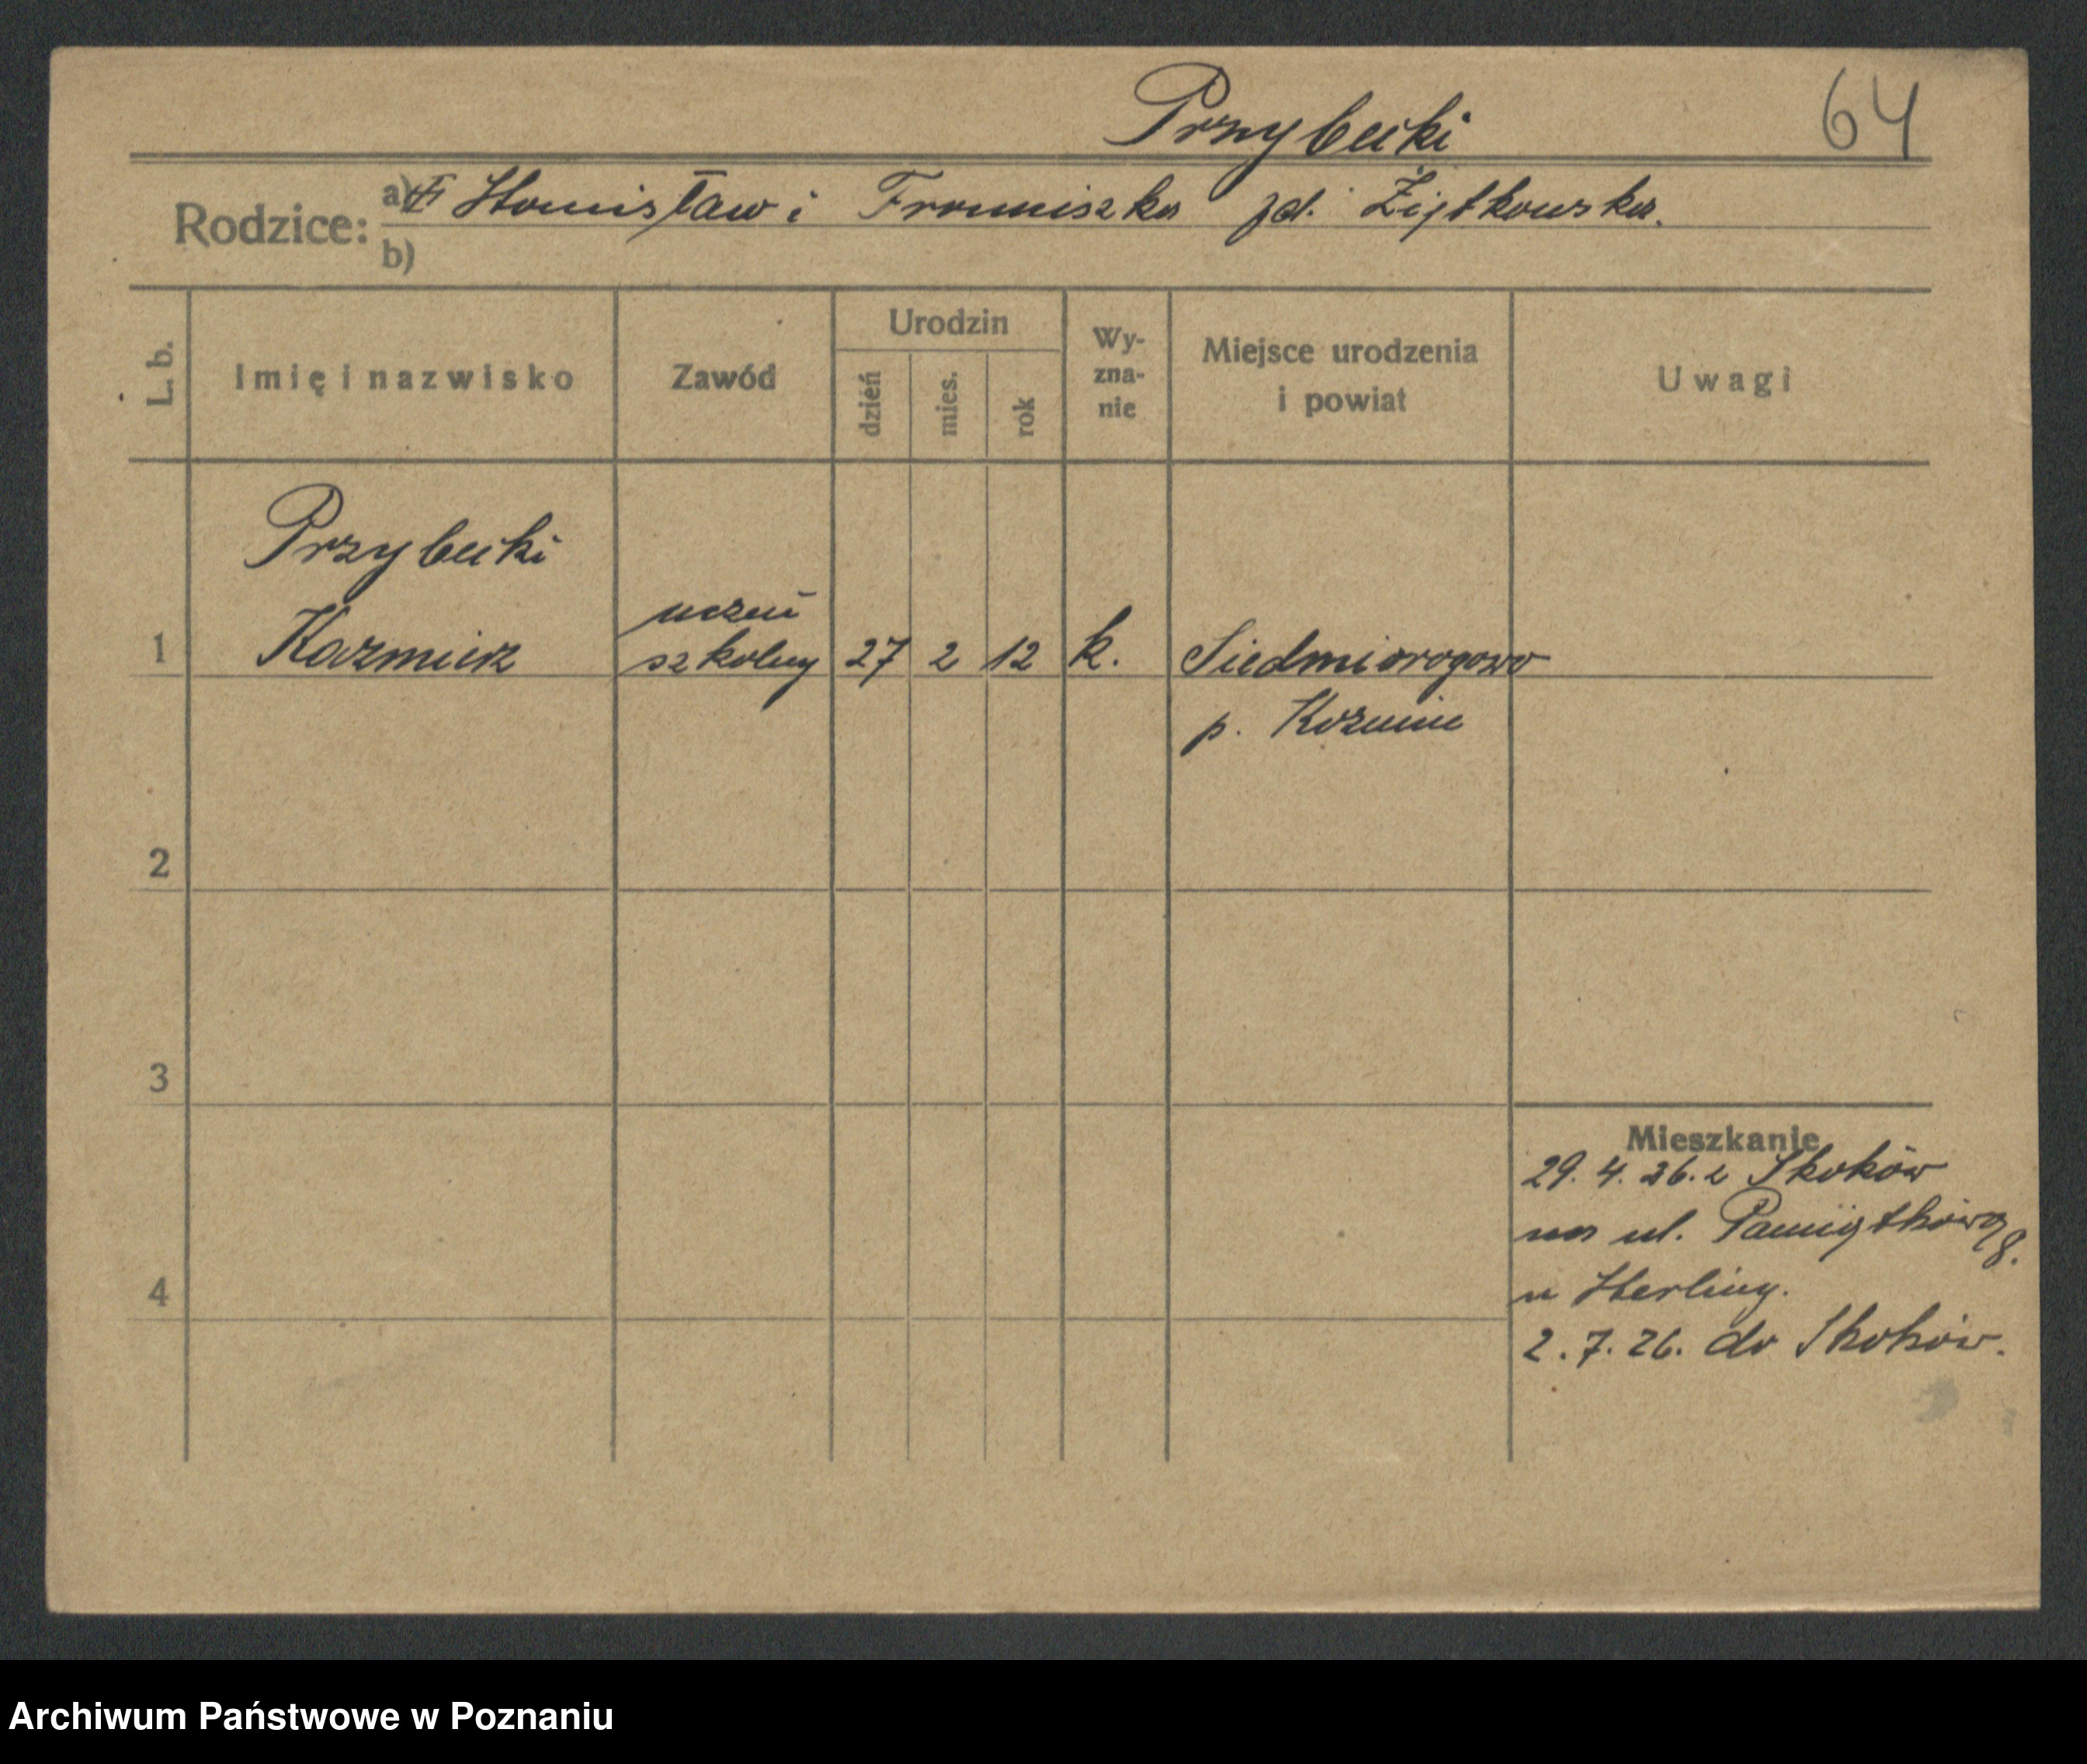 Przybecki
64
Rodzice: a) Stanisław i Franciszka zd. Ziętkowska.
b)
L. b.
Imię i nazwisko
Zawód
Urodzin
dzień
mies.
rok
Wy-
zna-
nie
Miejsce urodzenia
i powiat
Uwagi
Przybecki
uczeń
1 Kazmierz szkolny 27 2 12 k. Siedmiorogowo
p. Kozmin
2
3
Mieszkanie
29. 4. 26. z Skoków
na ul. Pamiątkową 8.
4
u Sterliny.
2. 7. 26. do Skoków.
Archiwum Państwowe w Poznaniu